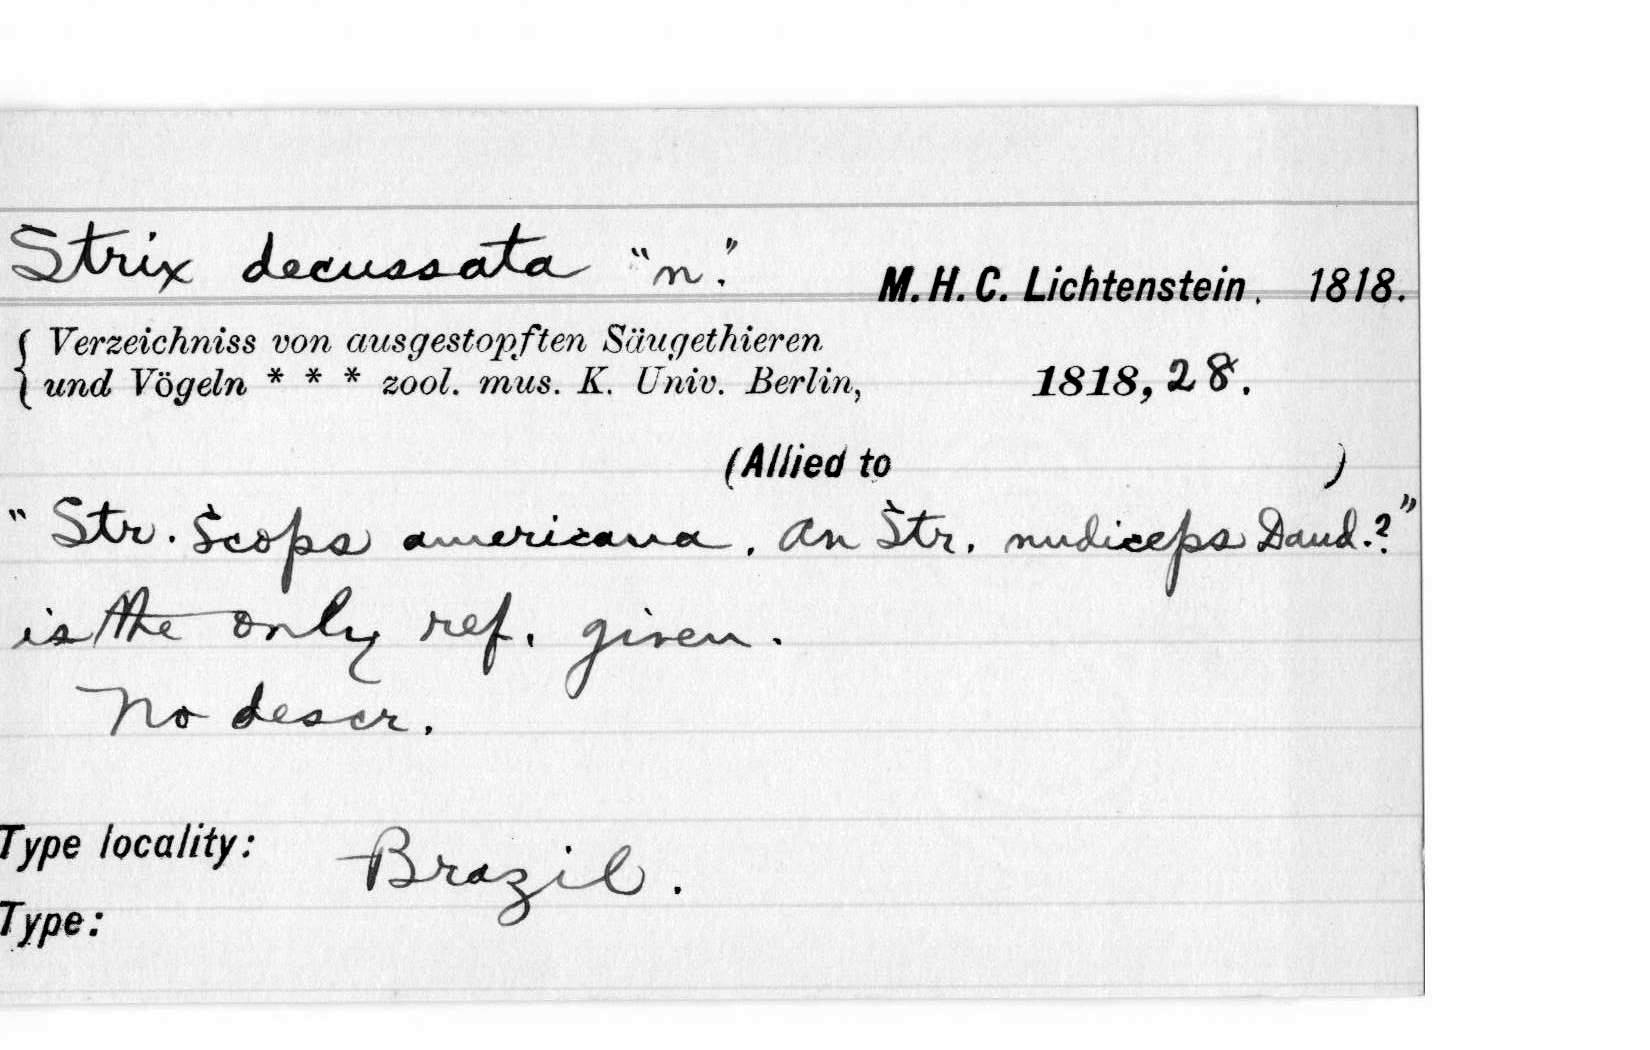 Strix decussata "n."
M. H. C. Lichtenstein. 1818.
{ Verzeichniss von ausgestopften Säugethieren
und Vögeln * * * zool. mus. K. Univ. Berlin, 1818, 28.
(Allied to )
"Str. Scops americana. an Str. nudiceps Daud.?"
is the only ref. given.
No descr.
Type locality: Brazil.
Type: